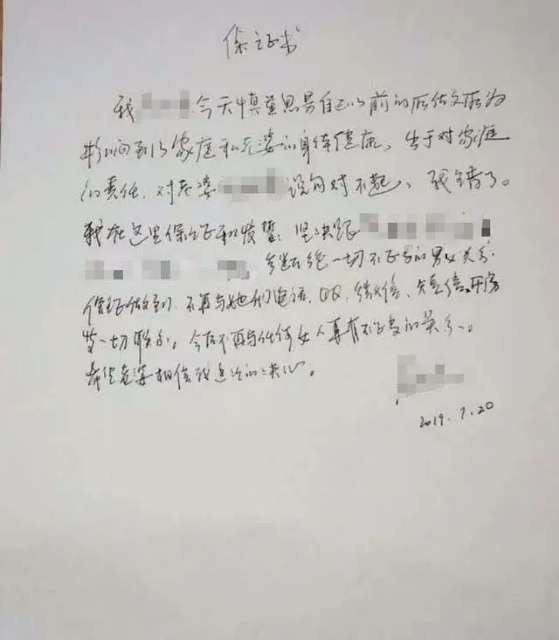 保证书
我今天慎重思考自己以前的所做所为
影响到了家庭和老婆的身体健康，出于对家庭
的责任，对老婆说句对不起，我错了。
我在这里保证和发誓：坚决跟
等断绝一切不正当的男女关系，
保证做到，不再与她们电话、QQ、微信、短信、开房
等一切联系。今后不再与任何女人再有不正当的关系。
希望老婆相信我这次的决心。
2019.7.20